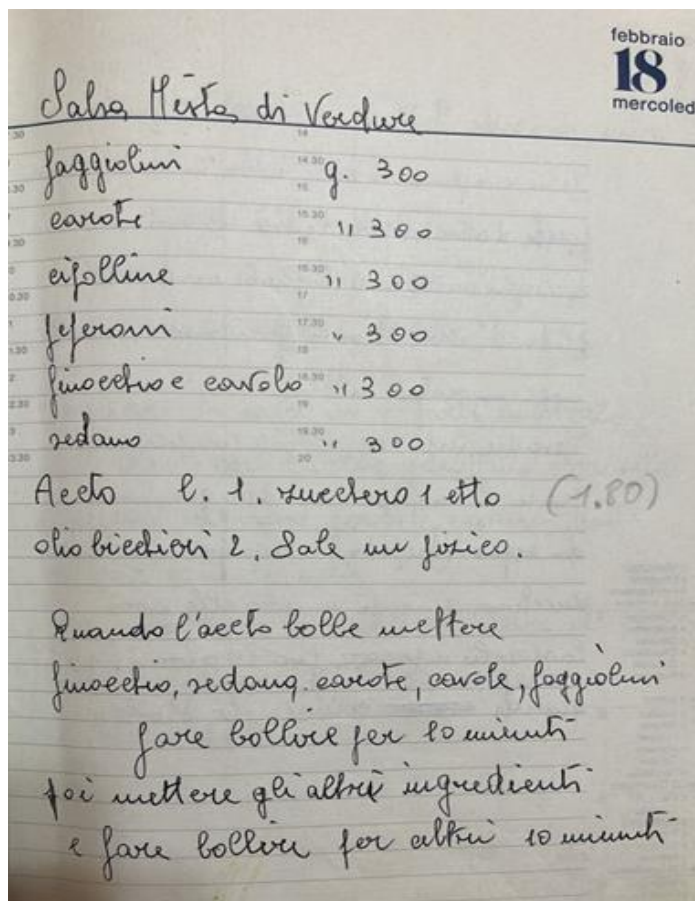 febbraio
18
mercoled
Salsa Mista di Verdure
faggiolini g. 300
carote " 300
cipolline " 300
peperoni " 300
finocchio e cavolo " 300
sedano " 300
Aceto l. 1. zucchero 1 etto (1.80)
olio bicchieri 2. Sale un pizico.
Quando l'aceto bolle mettere
finocchio, sedano, carote, cavole, faggiolini
fare bollire per 10 minuti
poi mettere gli altri ingredienti
e fare bollire per altri 10 minuti